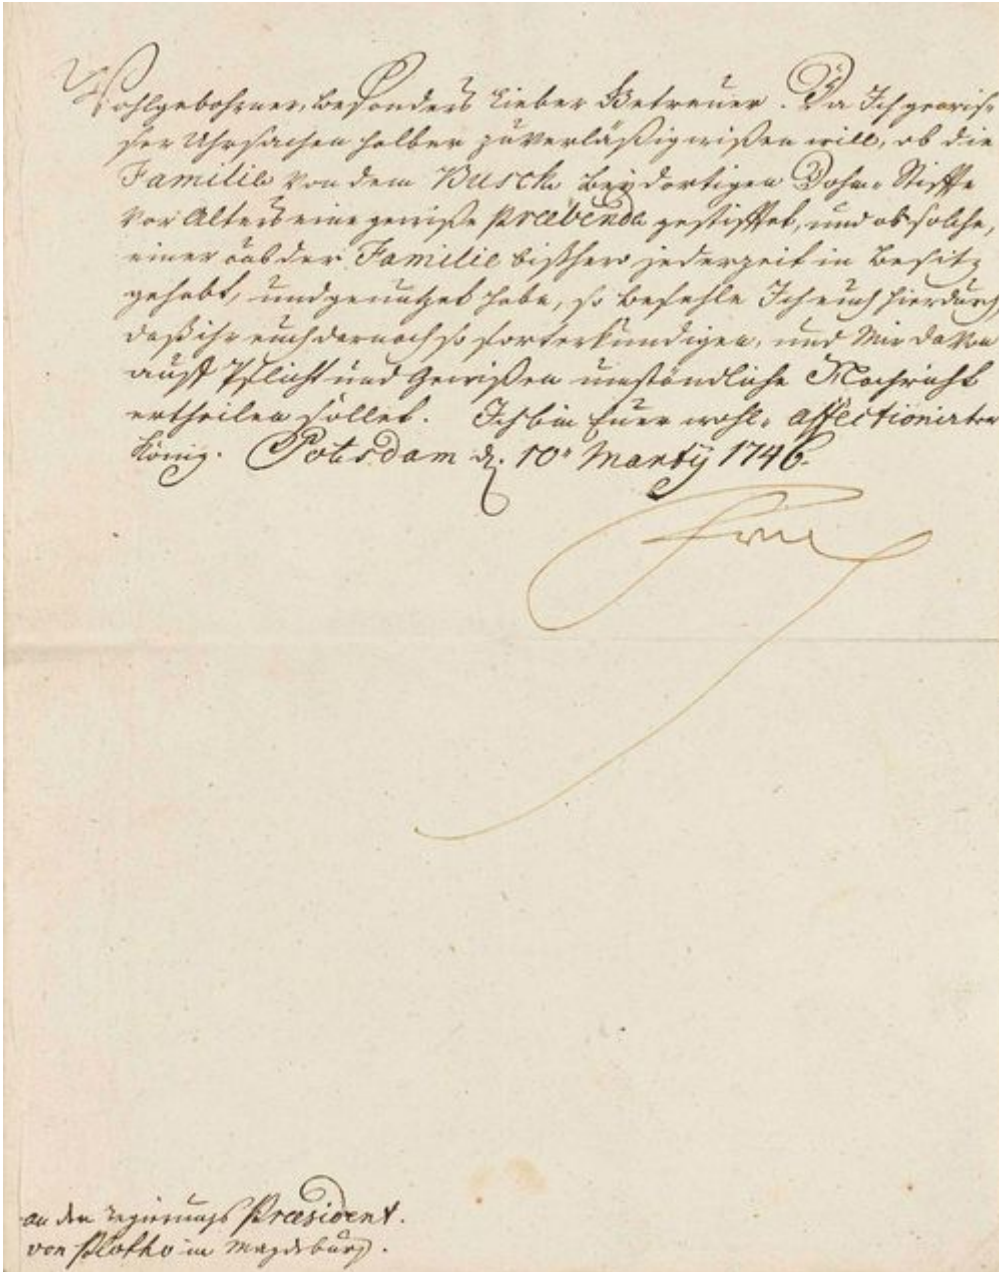 Wohlgebohrner, besonders lieber Getreuer. Da Ich gewis-
ser Uhrsachen halber zuverläßig wißen will, ob die
Familie von dem Busch bey dortigen Dohm-Stiffte
vor Alters eine gewiße Præbende gestifftet, und ob solche,
einer aus der Familie bißhero jederzeit in Besitz
gehabt, und genutzet habe, so befehle Ich euch hierdurch
daß ihr euch darnach so fort erkundigen, und Mir davon
auff Pflicht und Gewißen umständliche Nachricht
ertheilen sollet. Ich bin Euer wohl-affectionirter
König. Potsdam d. 10t Martÿ 1746.
Frch
an den Regierungs Præsident.
von Plotho in Magdeburg.